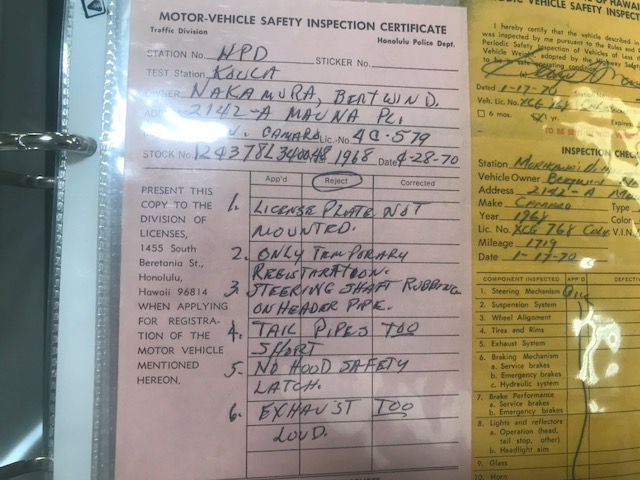 MOTOR-VEHICLE SAFETY INSPECTION CERTIFICATE
Traffic Division
Honolulu Police Dept.
STATION No. HPD
STICKER No.
TEST Station
OWNER NAKAMURA, BERTWIN D.
2142-A MAUNA PL.
CAMARO Lic.-No. 4C-579
STOCK No. 1968 Date 4-28-70
App'd Reject Corrected
1. LICENSE PLATE NOT
MOUNTED.
2. ONLY TEMPORARY
REGISTARATION.
3 STEERING SHAFT RUBBING
ON HEADER PIPE.
4. TAIL PIPES TOO
SHORT
5. NO HOOD SAFETY
LATCH.
6. EXHAUST TOO
LOUD.
PRESENT THIS
COPY TO THE
DIVISION OF
LICENSES,
1455 South
Beretania St.,
Honolulu,
Hawaii 96814
WHEN APPLYING
FOR REGISTRA-
TION OF THE
MOTOR VEHICLE
MENTIONED
HEREON.
OF HAWAI
VEHICLE SAFETY INSPEC
I hereby certify that the vehicle described
was inspected by me pursuant to the Rules and
Periodic Safety Inspection of Vehicles of
Vehicle adopted by the Highway
Dated 1-17-70
Veh. Lic. No.
6 mos. yr. Expires
INSPECTION CHEC
Station
Vehicle Owner
Address 2142-A
Make CAMARO Type
Year 1968 Color
Lic. No. XCG 768 V.I.N.
Mileage 1719
Date 1-17-70
COMPONENT INSPECTED APP'D DEFECTIVE
1. Steering Mechanism
2. Suspension System
3. Wheel Alignment
4. Tires and Rims
5. Exhaust System
6. Braking Mechanism
a. Service brakes
b. Emergency brakes
c. Hydraulic system
7. Brake Performance
a. Service brakes
b. Emergency brakes
8. Lights and reflectors
a. Operation (head,
tail stop, other)
b. Headlight aim
9. Glass
10. Horn